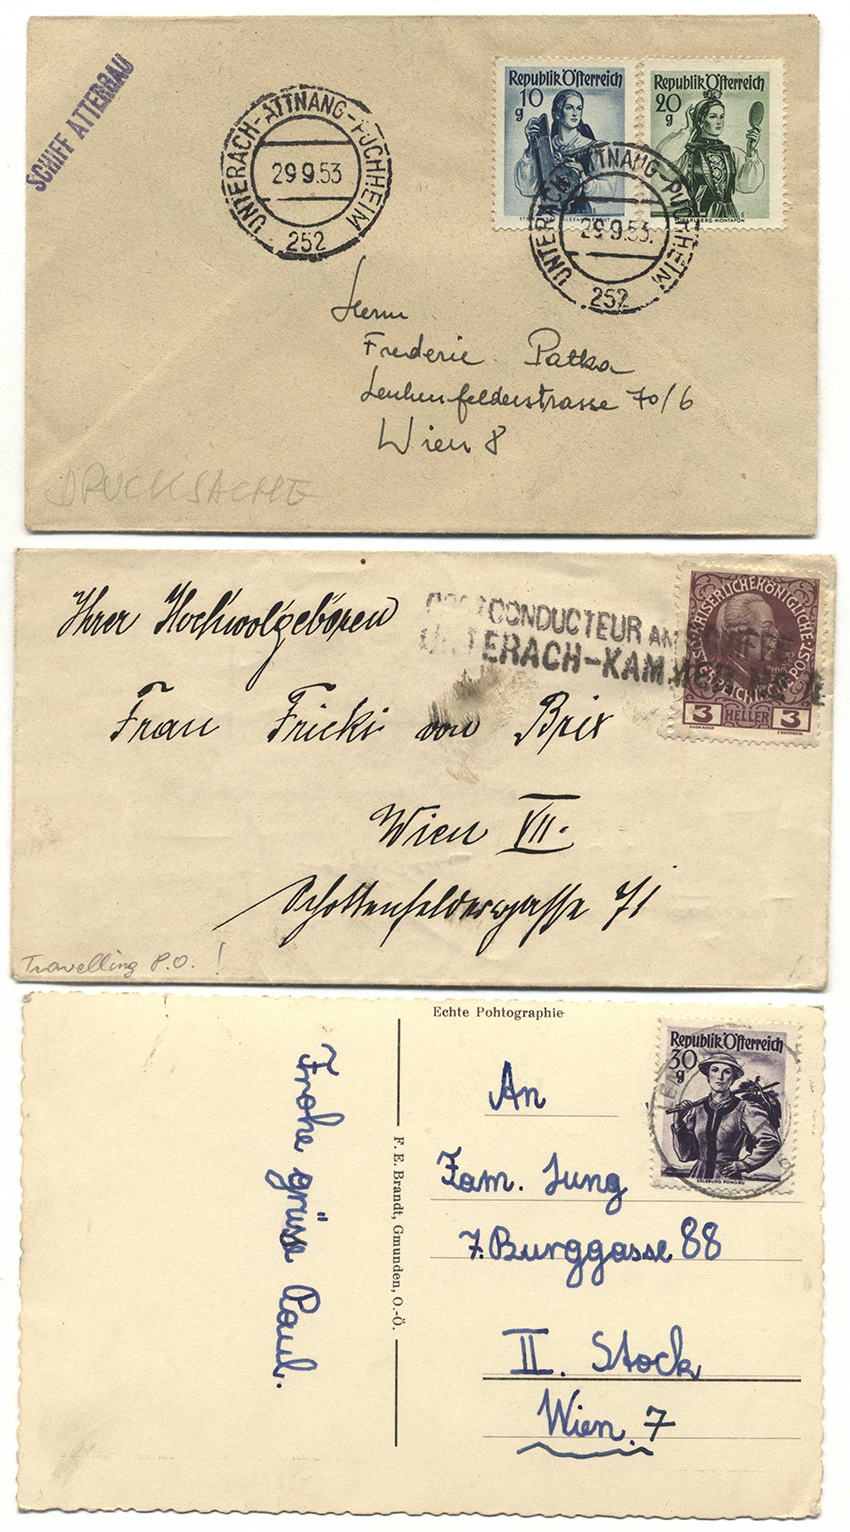 SCHIFF ATTERGAU
UNTERACH-ATTNANG-PUCHHEIM
29.9.53
252
Republik Österreich
10 g
Republik Österreich
20 g
VORARLBERG MONTAFON
UNTERACH-ATTNANG-PUCHHEIM
29.9.53.
252
Herrn
Frederic Patka
Lerchenfelderstrasse 70/6
Wien 8
DRUCKSACHE
Ihrer Hochwolgeboren
POSTCONDUCTEUR AM SCHIFFE
UNTERACH-KAMMER
KAISERLICHE KÖNIGLICHE
ÖSTERREICHISCHE POST
3 HELLER 3
Frau Fricki von Brix
Wien VII.
Schottenfeldergasse 71
Travelling P.O. !
Echte Pohtographie
Republik Österreich
30 g
SALZBURG PONGAU
Frohe grüsse Paul.
F. E. Brandt, Gmunden, O.-Ö.
An
Fam. Jung
7. Burggasse 88
II. Stock
Wien. 7